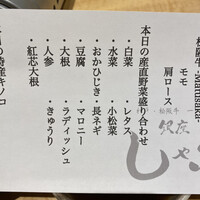 松阪牛 -Matsusaka-
モモ
肩ロース
本日の産直野菜盛り合わせ
・白菜 ・レタス
・水菜 ・小松菜
・おかひじき ・長ネギ
・豆腐 ・マロニー
・大根 ・ラディッシュ
・人参 ・きゅうり
・紅芯大根
特産キノコ
松阪牛
銀座
しゃ